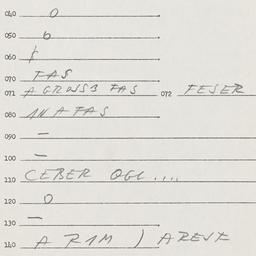 040 O
050 b
060
070 FAS
071 A GROWSB FAS 072 FESER
080 IN A FAS
090 —
100 —
110 CEBER OGL ....
120 O
130 —
140 A RIM ) A